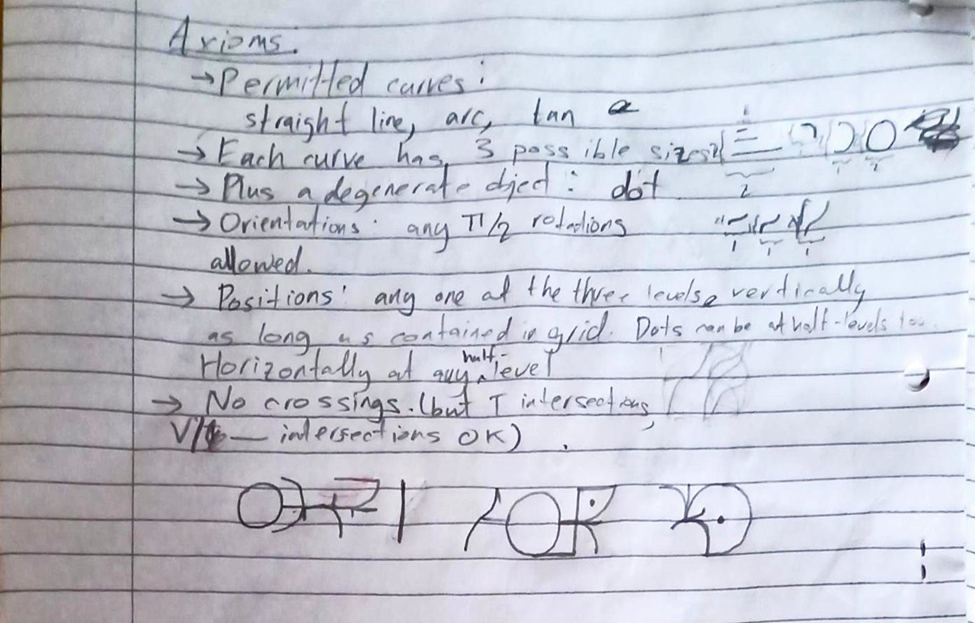 Axioms.
→ Permitted curves:
straight line, arc, tan
→ Each curve has 3 possible sizes
→ Plus a degenerate object: dot
→ Orientations: any π/2 rotations
allowed.
→ Positions: any one of the three levels vertically
as long as contained in grid. Dots can be at half-levels too.
Horizontally at any half-level
→ No crossings. (but T intersections,
V/ — intersections OK)